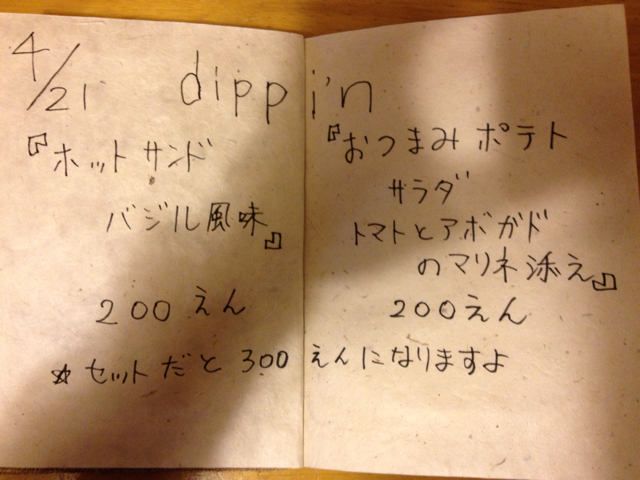 4/21 dippin
『ホットサンド
バジル風味』
200えん
『おつまみポテト
サラダ
トマトとアボガド
のマリネ添え』
200えん
☆セットだと300えんになりますよ